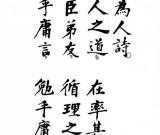 為人詩
人之道 在率其
臣弟友 循理之
乎庸言 勉乎庸